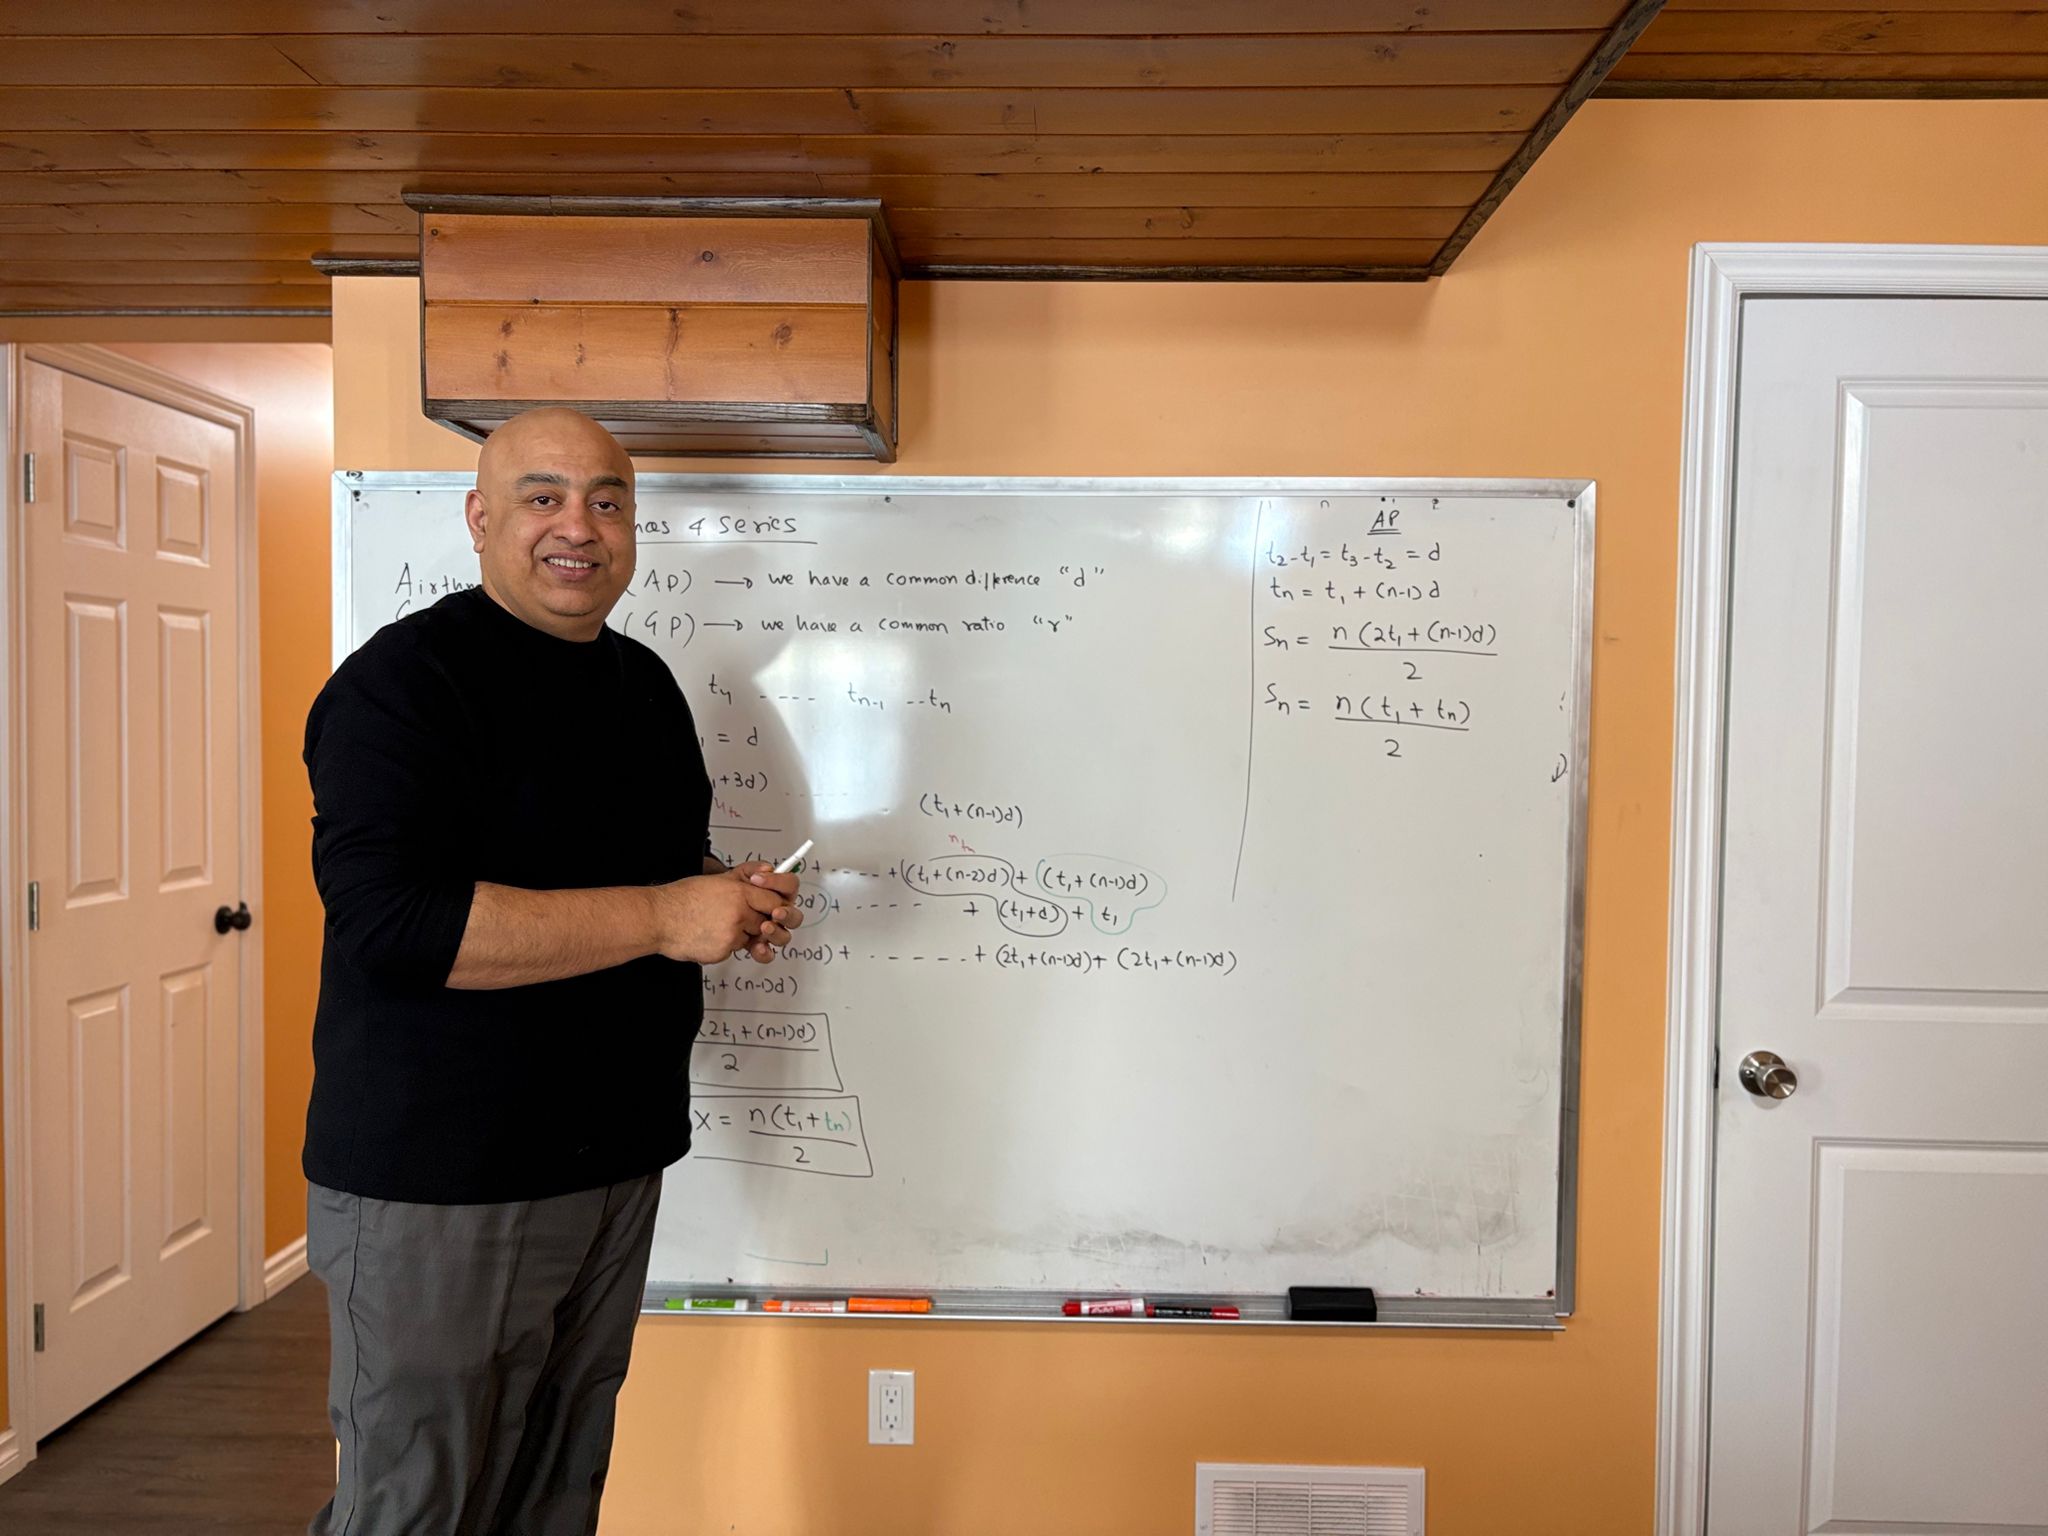 nces & Series
Airthm (AP) → we have a common difference "d"
(GP) → we have a common ratio "r"
t₄ ---- tₙ₋₁ --tₙ
₁ = d
₁+3d) ------ (t₁+(n-1)d)
4tn
ntn
+ ---- + (t₁+(n-2)d) + (t₁+(n-1)d)
)d) + ---- + (t₁+d) + t₁
+(n-1)d) + ------ + (2t₁+(n-1)d) + (2t₁+(n-1)d)
t₁+(n-1)d)
(2t₁+(n-1)d)
2
X = n(t₁+tₙ)
2
AP
t₂-t₁ = t₃-t₂ = d
tₙ = t₁ + (n-1)d
Sₙ = n(2t₁+(n-1)d)
2
Sₙ = n(t₁ + tₙ)
2